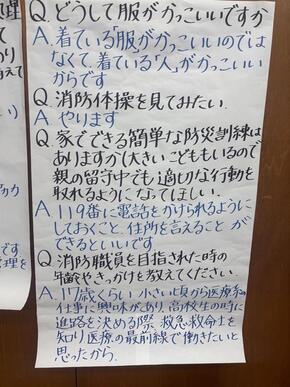 Q. どうして服がかっこいいですか
A. 着ている「服」がかっこいいのでは
なくて、着ている「人」がかっこいい
からです
Q. 消防体操を見てみたい.
A やります
Q. 家でできる簡単な防災訓練は
ありますか(大きいこどももいるので
親の留守中でも適切な行動を
取れるようになってほしい.
A. 119番に電話をかけられるように
しておくこと、住所を言えること が
できるといいです
Q 消防職員を目指された時の
年齢やきっかけを教えてください.
A. 17歳くらい 小さい頃から医療系の
仕事に興味があり、高校生の時に
進路を決める際、救急救命士を
知り医療の最前線で働きたいと
思ったから.